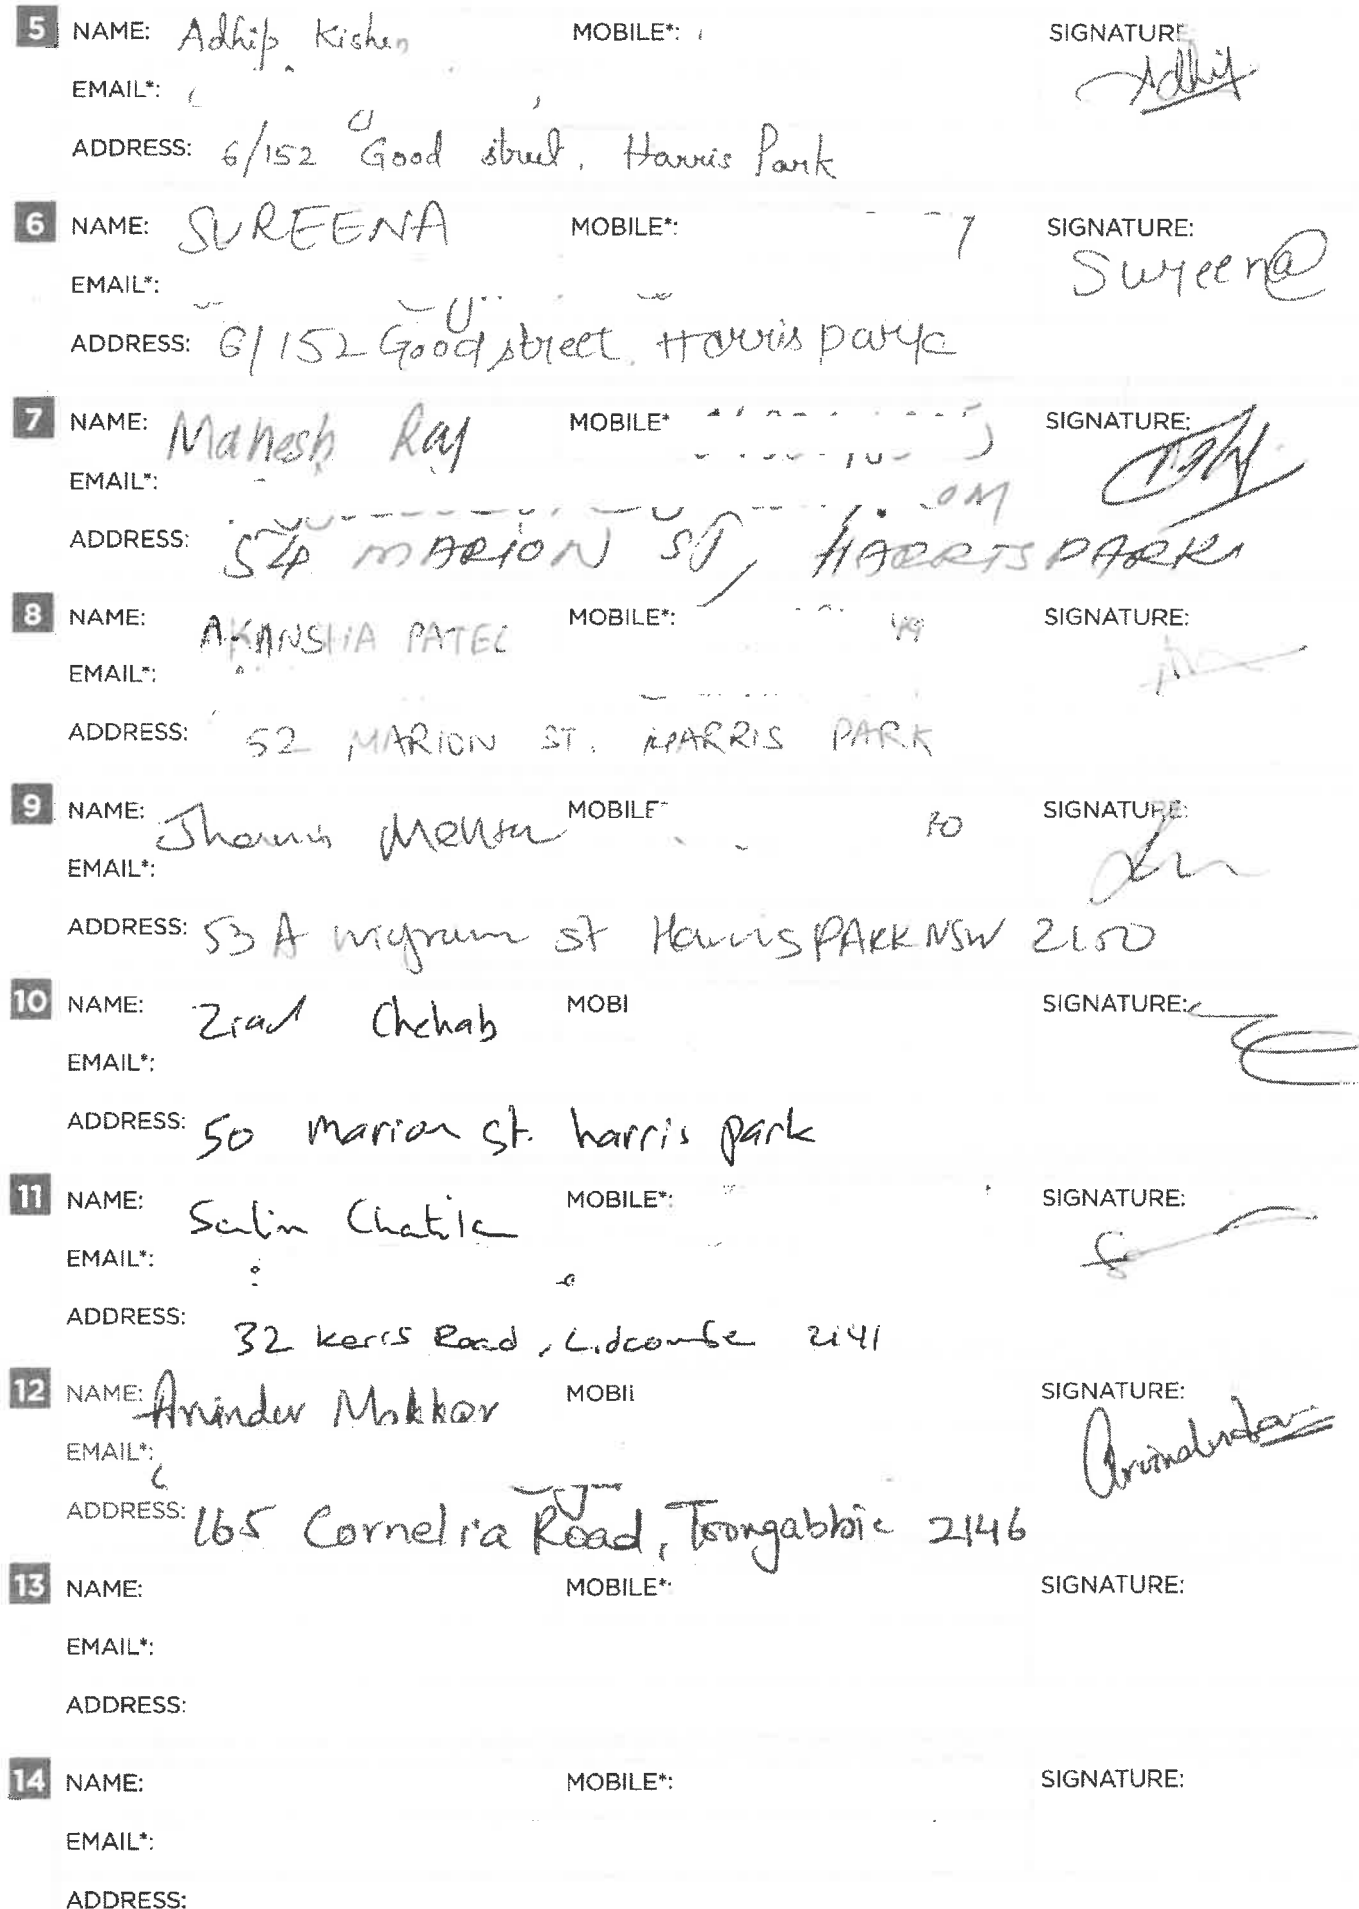 5 NAME: Adhip Kishen MOBILE*: SIGNATURE Adhip
EMAIL*:
ADDRESS: 6/152 Good street, Harris Park
6 NAME: SUREENA MOBILE*: 7 SIGNATURE: Sureena
EMAIL*:
ADDRESS: 6/152 Good street, Harris park
7 NAME: Mahesh Raj MOBILE* SIGNATURE:
EMAIL*: OM
ADDRESS: 54 MARION ST, HARRIS PARK
8 NAME: AKANSHA PATEL MOBILE*: 49 SIGNATURE:
EMAIL*:
ADDRESS: 52 MARION ST. HARRIS PARK
9 NAME: Mehta MOBILE SIGNATURE:
EMAIL*:
ADDRESS: 53 A wigram st Harris PARK NSW 2150
10 NAME: Ziad Chehab MOBI SIGNATURE:
EMAIL*:
ADDRESS: 50 marion st. harris park
11 NAME: Chatila MOBILE*: SIGNATURE:
EMAIL*:
ADDRESS: 32 Road, Lidcombe 2141
12 NAME: Arvinder Makkar MOBIL SIGNATURE:
EMAIL*:
ADDRESS: 165 Cornelia Road, Toongabbie 2146
13 NAME: MOBILE*: SIGNATURE:
EMAIL*:
ADDRESS:
14 NAME: MOBILE*: SIGNATURE:
EMAIL*:
ADDRESS: